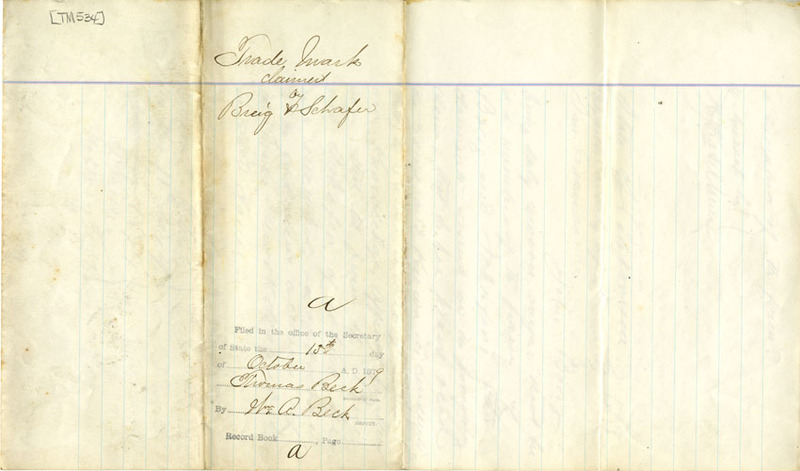 [TM534]
Trade Mark
claimed
by
Breig & Schafer
a
Filed in the office of the Secretary
of State the 15th day
of October A. D. 1879
Thomas Beck
By Wm A. Beck
Record Book , Page
a